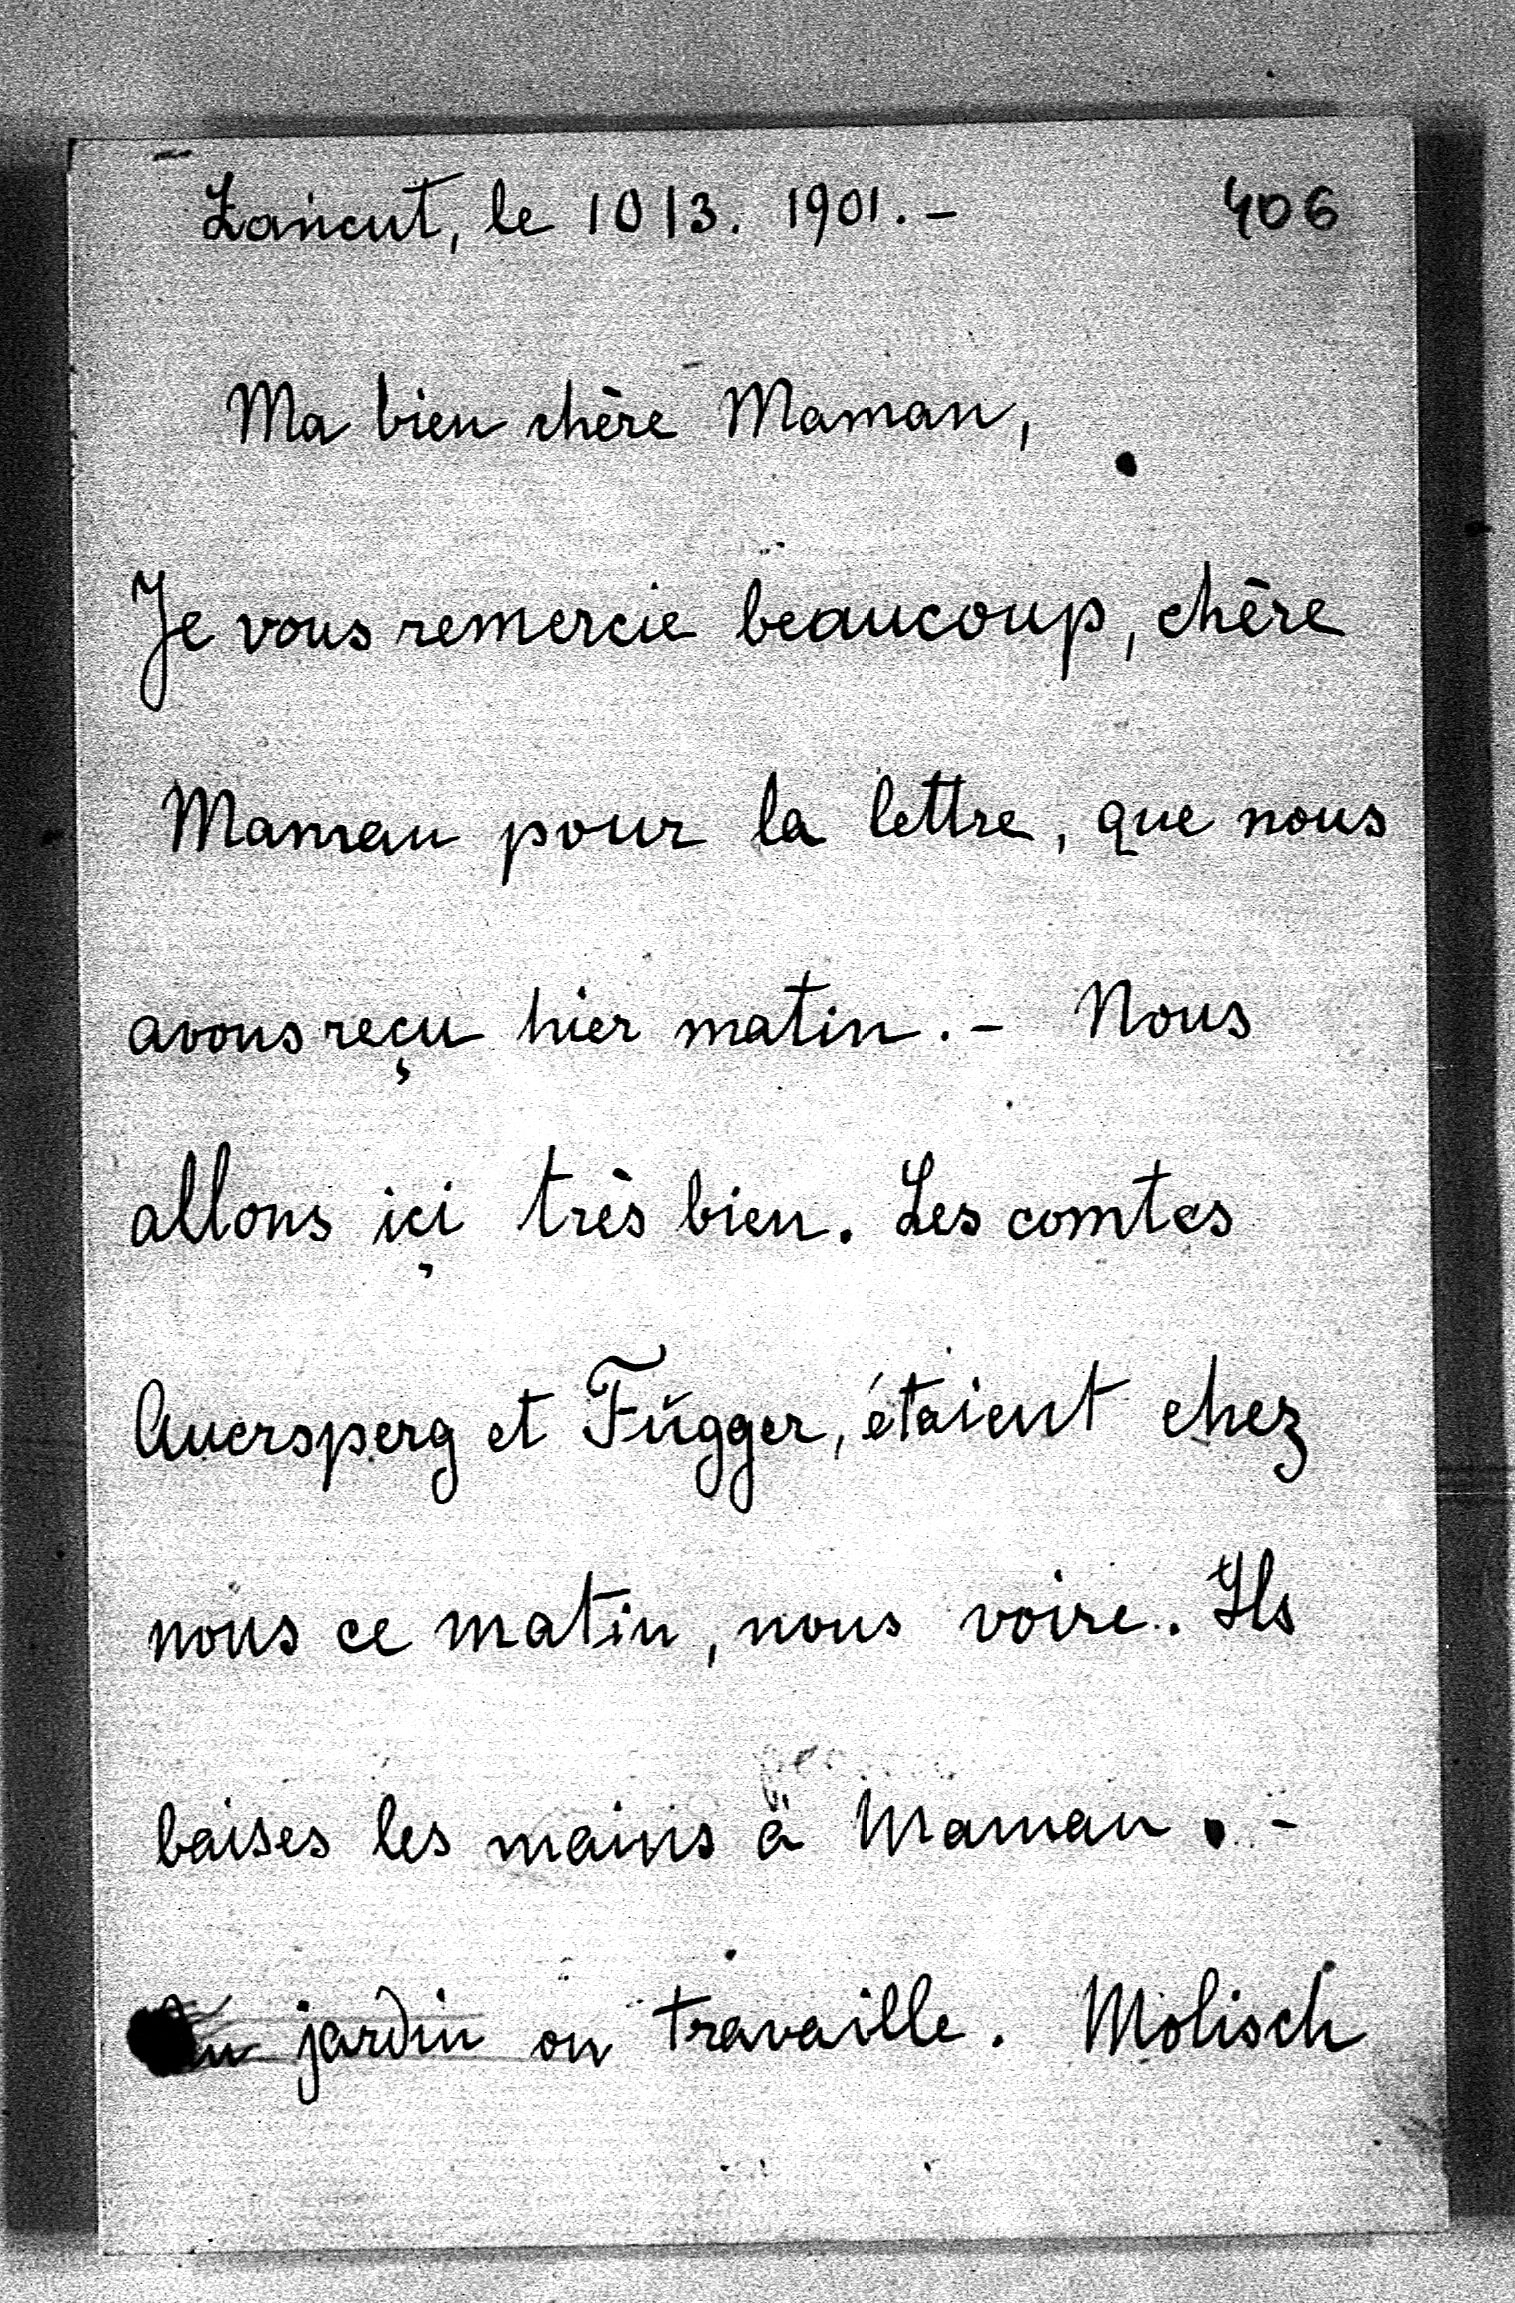 Łańcut, le 10/3. 1901. – 406
Ma bien chère Maman,
Je vous remercie beaucoup, chère
Maman pour la lettre, que nous
avons reçu hier matin. – Nous
allons içi très bien. Les comtes
Auersperg et Fŭgger, étaient chez
nous ce matin, nous voire. Ils
baises les mains à Maman. –
Au jardin on travaille. Molisch